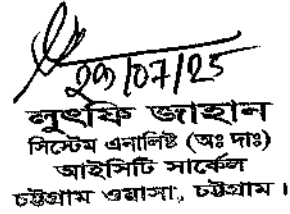 29/07/25
লুৎফি জাহান
সিস্টেম এনালিষ্ট (অঃ দাঃ)
আইসিটি সার্কেল
চট্টগ্রাম ওয়াসা, চট্টগ্রাম।